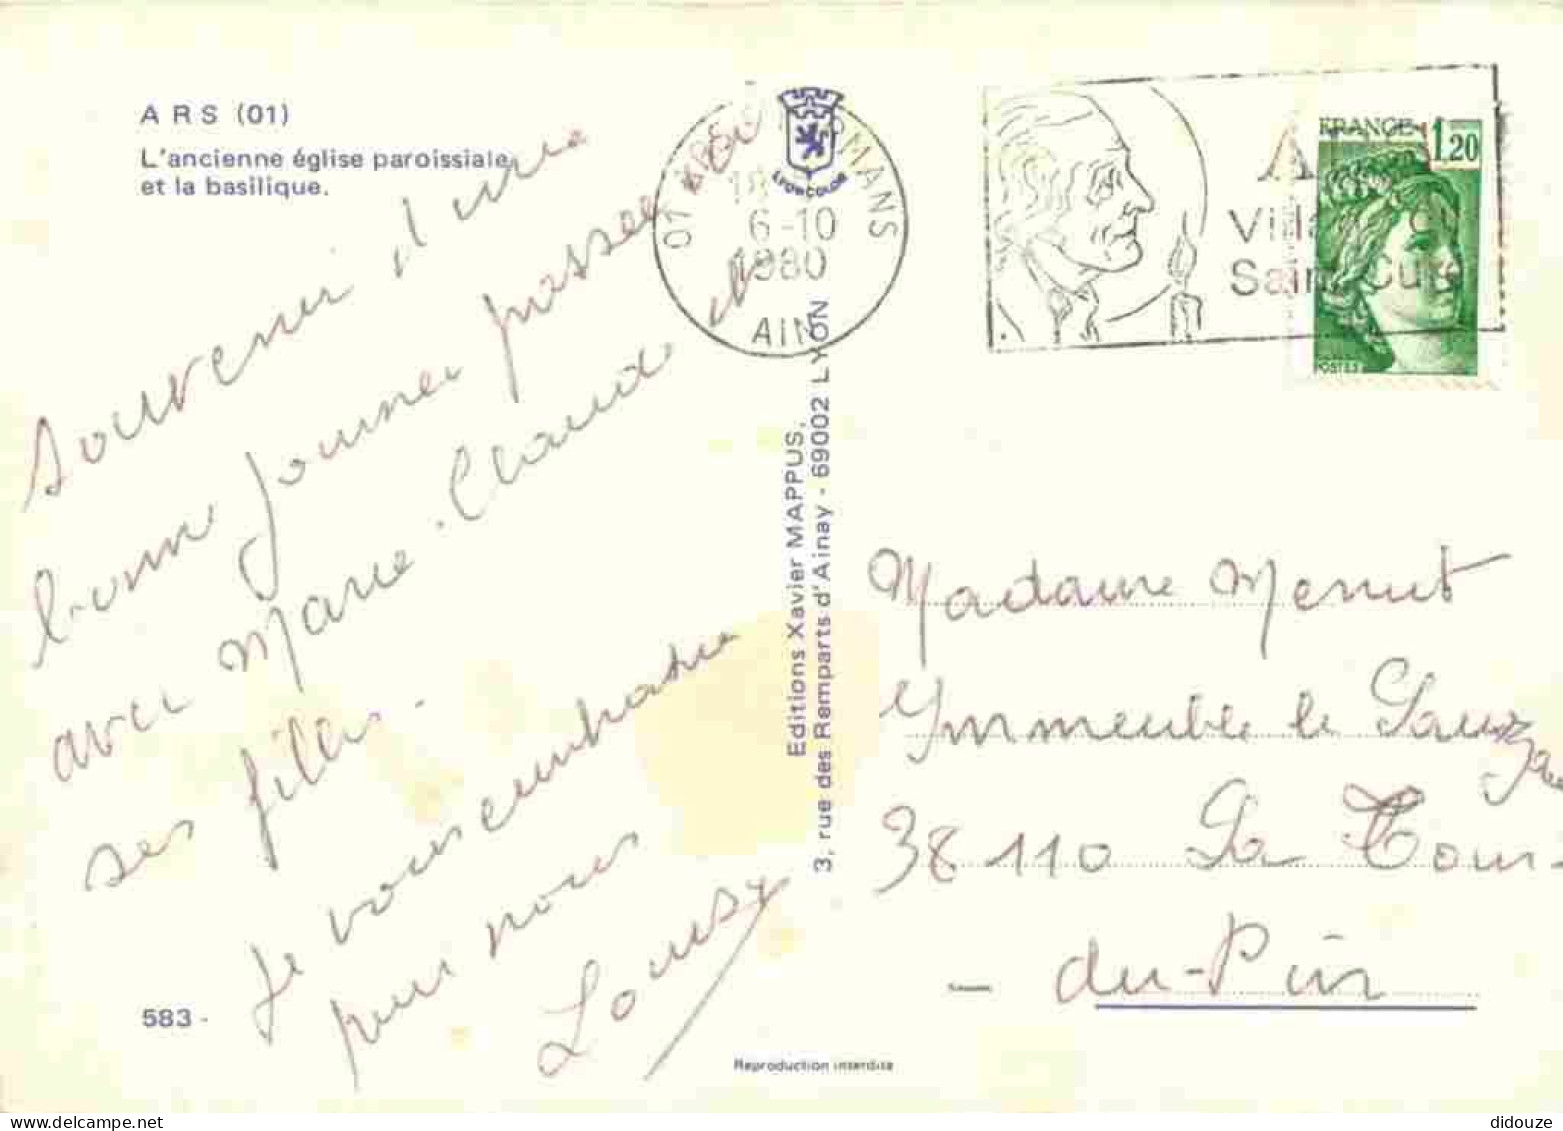 ARS (01)
L'ancienne église paroissiale
et la basilique.
Souvenir d'une
bonne journée passée
avec Marie-Claude
ses filles.
Je vous embrasse
pour nous
583 -
LYONCOLOR
01 ARS
18
6-10
1980
AIN
Editions Xavier MAPPUS,
3, rue des Remparts d'Ainay - 69002 LYON
Reproduction interdite
Saint Curé
FRANCE 1,20
POSTES
Madame Menut
Immeuble le
38110 La Tour-
- du-Pin
didouze